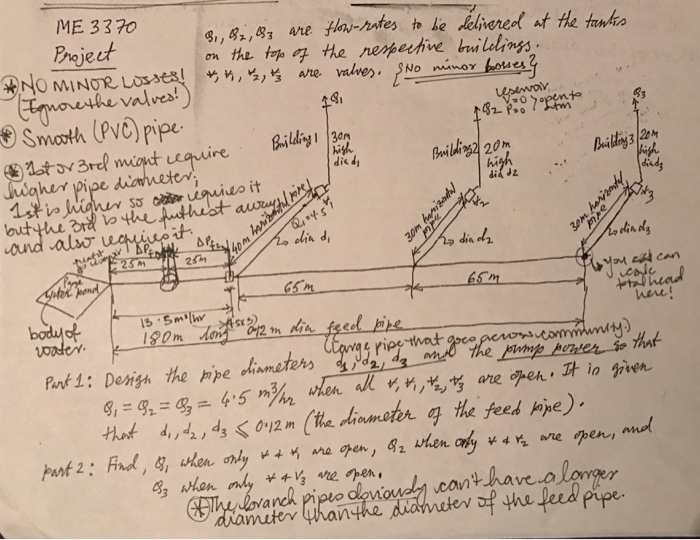 ME 3370
Project
Q1, Q2, Q3 are flow-rates to be delivered at the tanks
on the top of the respective buildings.
are valves. {No minor losses}
* NO MINOR LOSSES!
(Ignore the valves!)
* Smooth (PVC) pipe.
* 1st or 3rd might require
higher pipe diameter,
1st is higher so requires it
but the 3rd is the furthest away
and also requires it.
Q1
Building 1
30m
high
dia d1
reservoir
V=0 open to
P=0 atm
Q2
Building 2
20m
high
dia d2
Q3
Building 3
20m
high
dia d3
40m horizontal pipe
Q1=4.5
V1
dia d1
30m horizontal
pipe
V2
dia d2
30m horizontal
pipe
V3
dia d3
you can
total head
here!
25m
25m
65m
65m
body of
water.
13.5m³/hr
(4.5x3)
180m long 0.12m dia feed pipe
(large pipe that goes across community)
Part 1: Design the pipe diameters d1, d2, d3 and the pump power so that
Q1 = Q2 = Q3 = 4.5 m³/hr when all v, v1, v2, v3 are open. It is given
that d1, d2, d3 ≤ 0.12m (the diameter of the feed pipe).
Part 2: Find, Q1 when only v + v1 are open, Q2 when only v + v2 are open, and
Q3 when only v + v3 are open.
* The branch pipes obviously can't have a larger
diameter than the diameter of the feed pipe.